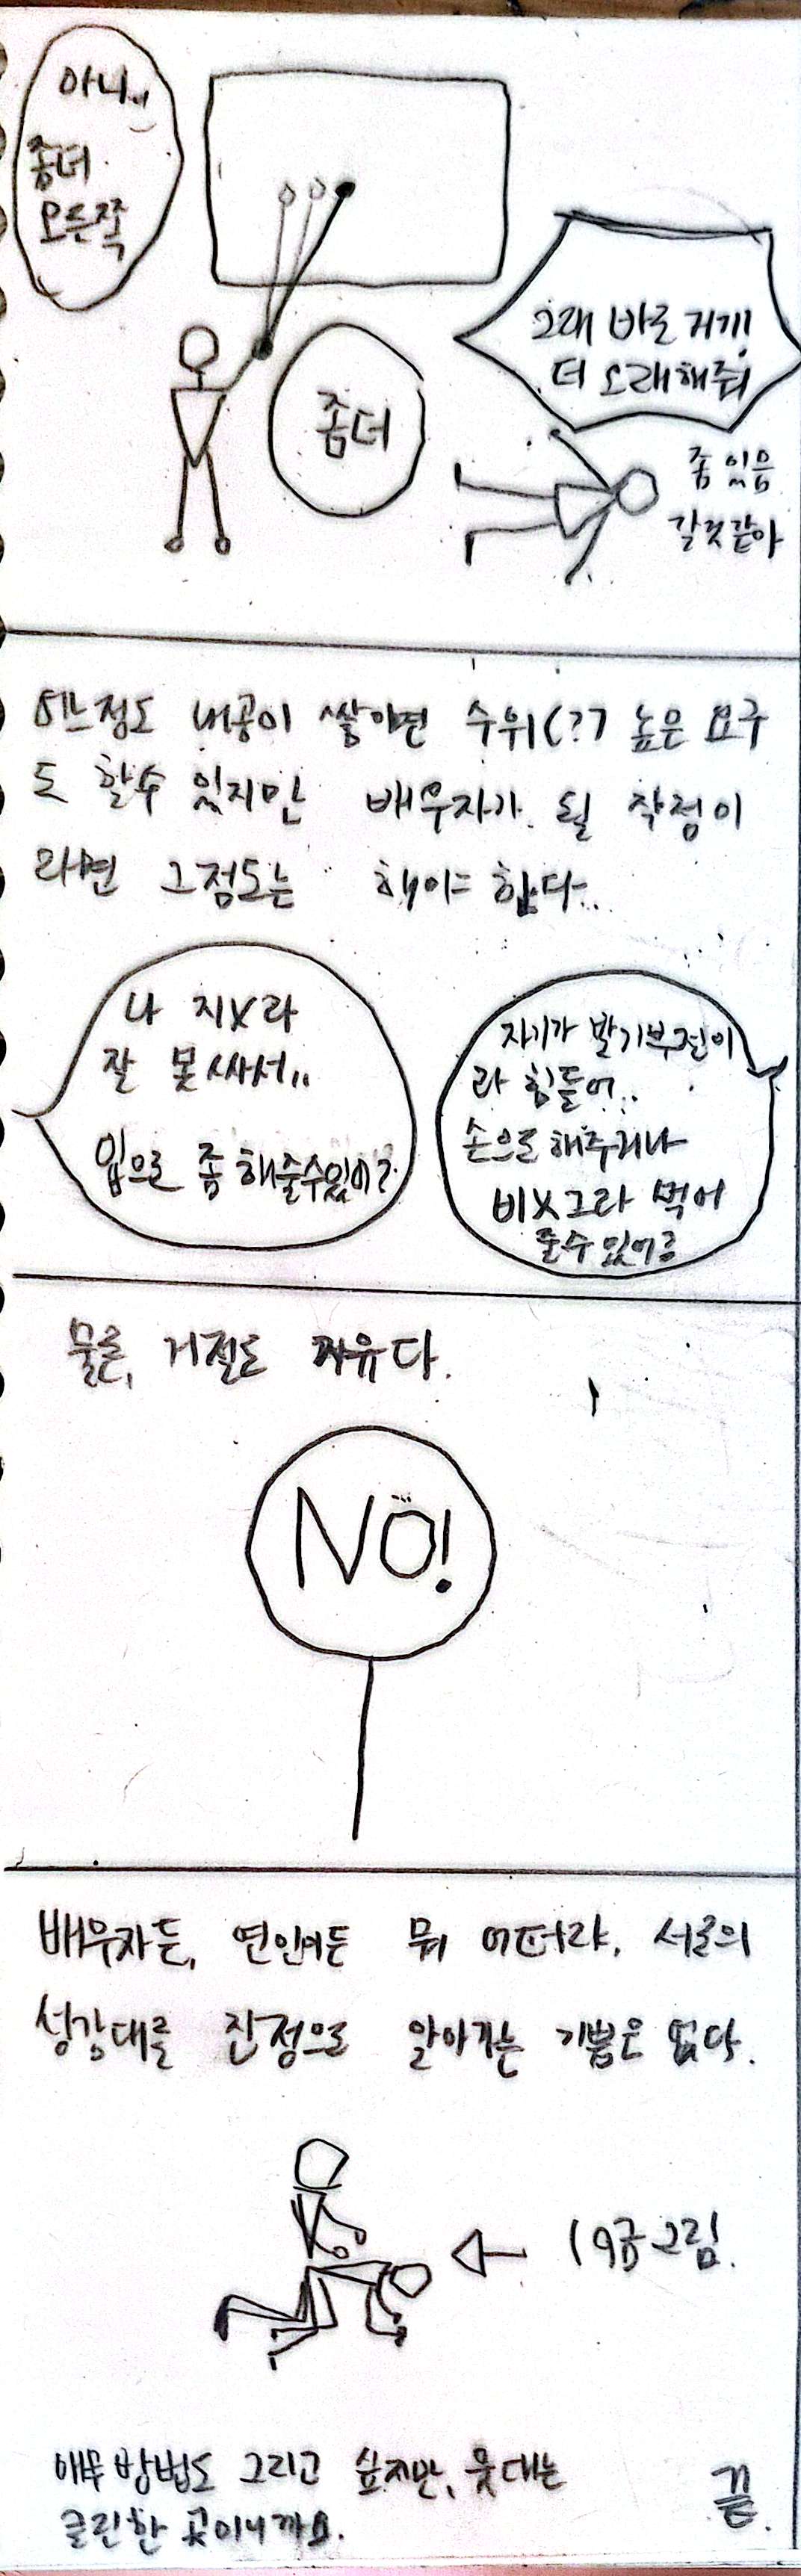 아니..
좀더
오른쪽
좀더
그래 바로 거기!
더 오래해줘
좀 있음
갈것같아
어느정도 내공이 쌓이면 수위(?7 높은 요구
도 할수 있지만 배우자가 될 작정이
라면 그정도는 해야 한다..
나 지X라
잘 못싸서..
입으로 좀 해줄수있어?
자기가 발기부전이
라 힘들어..
손으로 해주거나
비X그라 먹어
줄수있어?
물론, 거절도 자유다.
NO!
배우자든, 연인이든 뭐 어떠랴, 서로의
성감대를 진정으로 알아가는 기쁨은 크다.
19금그림.
애무방법도 그리고 싶지만, 웃대는
클린한 곳이니까요.
끝.